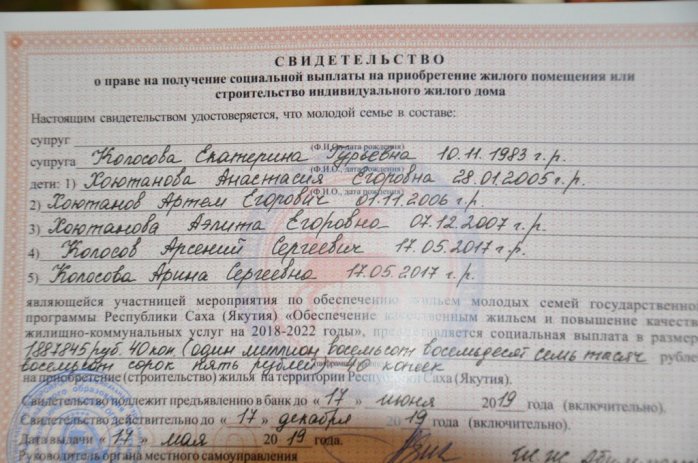 СВИДЕТЕЛЬСТВО
о праве на получение социальной выплаты на приобретение жилого помещения или
строительство индивидуального жилого дома
Настоящим свидетельством удостоверяется, что молодой семье в составе:
супруг
(Ф.И.О., дата рождения)
супруга Колосова Екатерина Гурьевна 10.11.1983 г.р.
(Ф.И.О., дата рождения)
дети: 1) Хоютанова Анастасия Егоровна 28.01.2005 г.р.
(Ф.И.О., дата рождения)
2) Хоютанов Артем Егорович 01.11.2006 г.р.
3) Хоютанова Аэлита Егоровна 07.12.2007 г.р.
4) Колосов Арсений Сергеевич 17.05.2017 г.р.
5) Колосова Арина Сергеевна 17.05.2017 г.р.
являющейся участницей мероприятия по обеспечению жильем молодых семей государственно
программы Республики Саха (Якутия) «Обеспечение качественным жильем и повышение качеств
жилищно-коммунальных услуг на 2018-2022 годы», предоставляется социальная выплата в размер
1887845 руб. 40 коп (один миллион восемьсот восемьдесят семь тысяч рубле
восемьсот сорок пять рублей) 40 копеек
на приобретение (строительство) жилья на территории Республики Саха (Якутия).
Свидетельство подлежит предъявлению в банк до « 17 » июня 2019 года (включительно).
Свидетельство действительно до « 17 » декабря 2019 года (включительно).
Дата выдачи « 17 » мая 2019 года.
Руководитель органа местного самоуправления